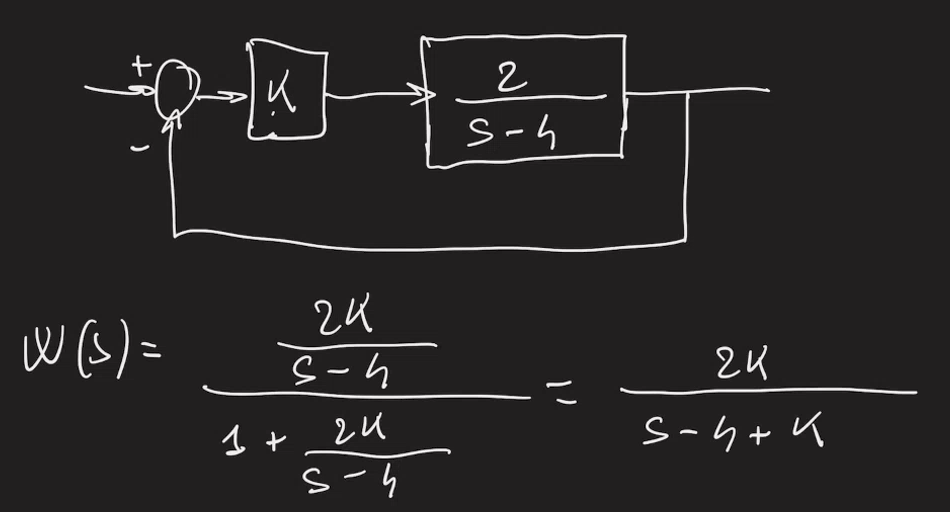 +
K
2
s-4
-
W(s) = \frac{\frac{2K}{s-4}}{1+\frac{2K}{s-4}} = \frac{2K}{s-4+K}